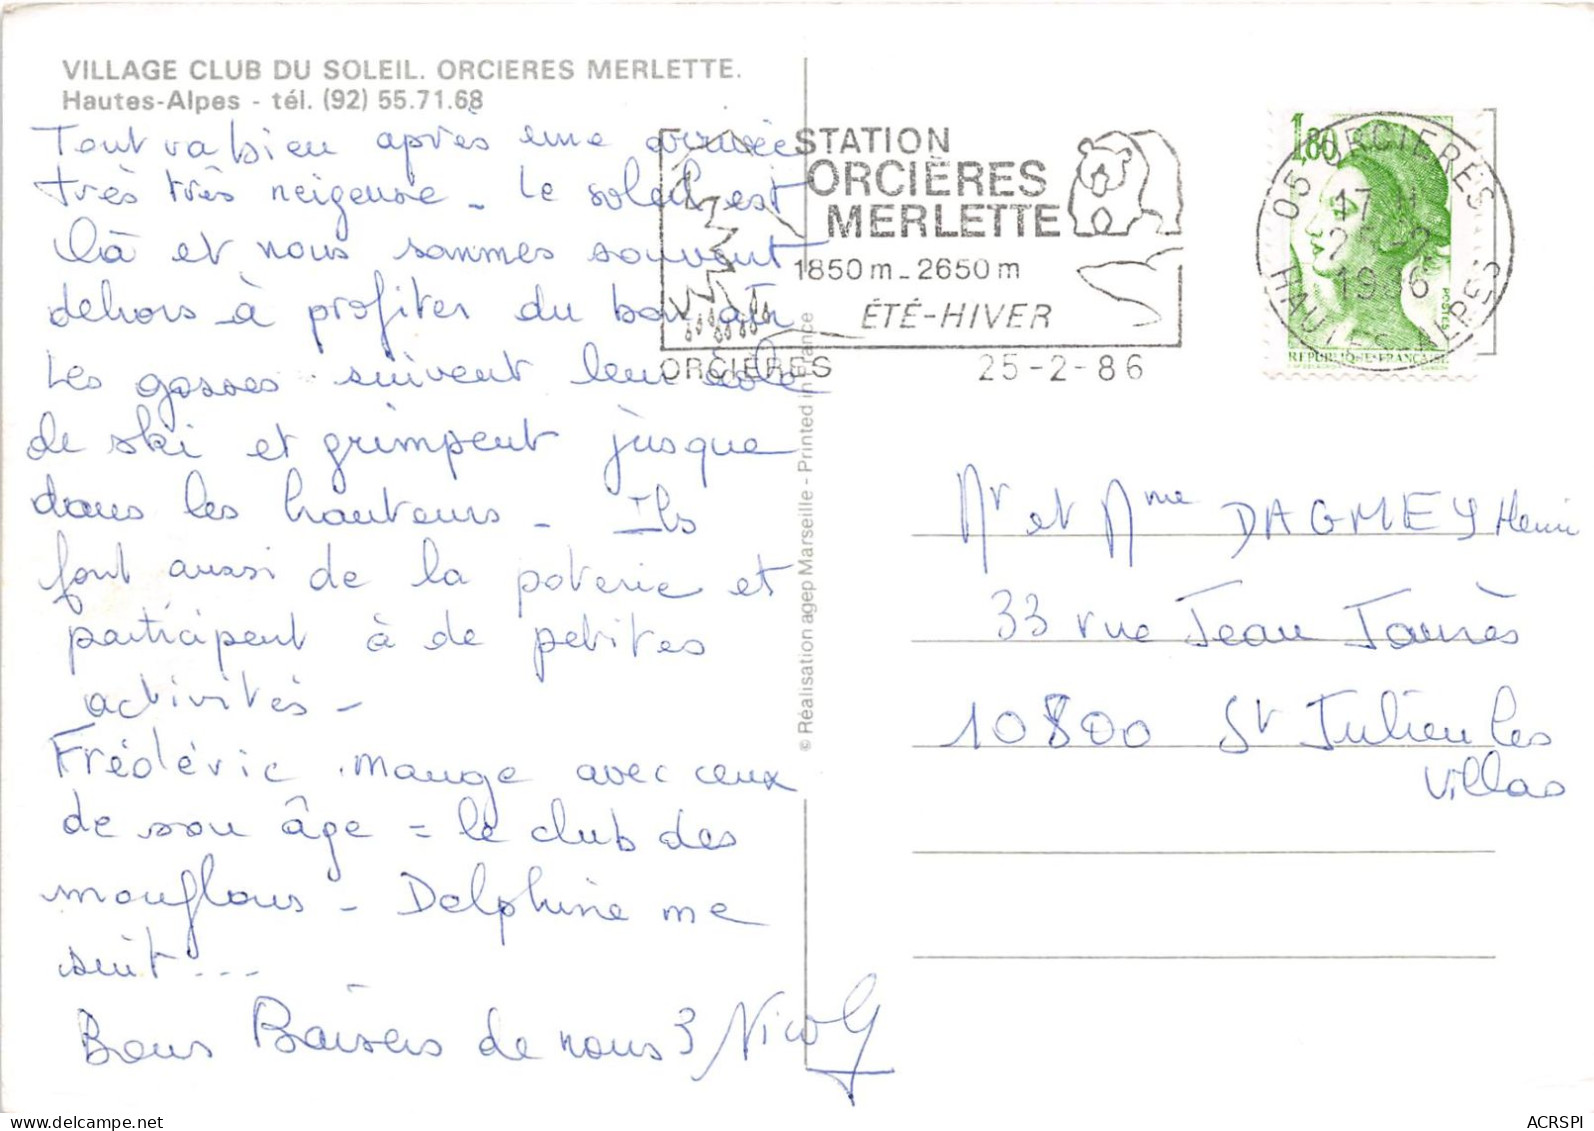 VILLAGE CLUB DU SOLEIL. ORCIERES MERLETTE.
Hautes-Alpes - tél. (92) 55.71.68
Tout va bien après une arrivée
très très neigeuse _ Le soleil est
là et nous sommes souvent
dehors à profiter du bon air
Les gosses suivent leur école
de ski et grimpent jusque
dans les hauteurs _ Ils
font aussi de la poterie et
participent à de petites
activités _
Frédéric mange avec ceux
de son âge = le club des
mouflons _ Delphine me
suit ...
Bons Baisers de nous 3
© Réalisation agep Marseille - Printed in France
STATION
ORCIÈRES
MERLETTE
1850 m _ 2650 m
ÉTÉ-HIVER
ORCIERES
25-2-86
1,80
POSTES
REPUBLIQUE·FRANCAISE
05 ORCIERES
17 H
25-2
1986
HAUTES ALPES
Mr et Mme DAGMEY Henri
33 rue Jean Jaurès
10800 St Julien les
Villas
ACRSPI